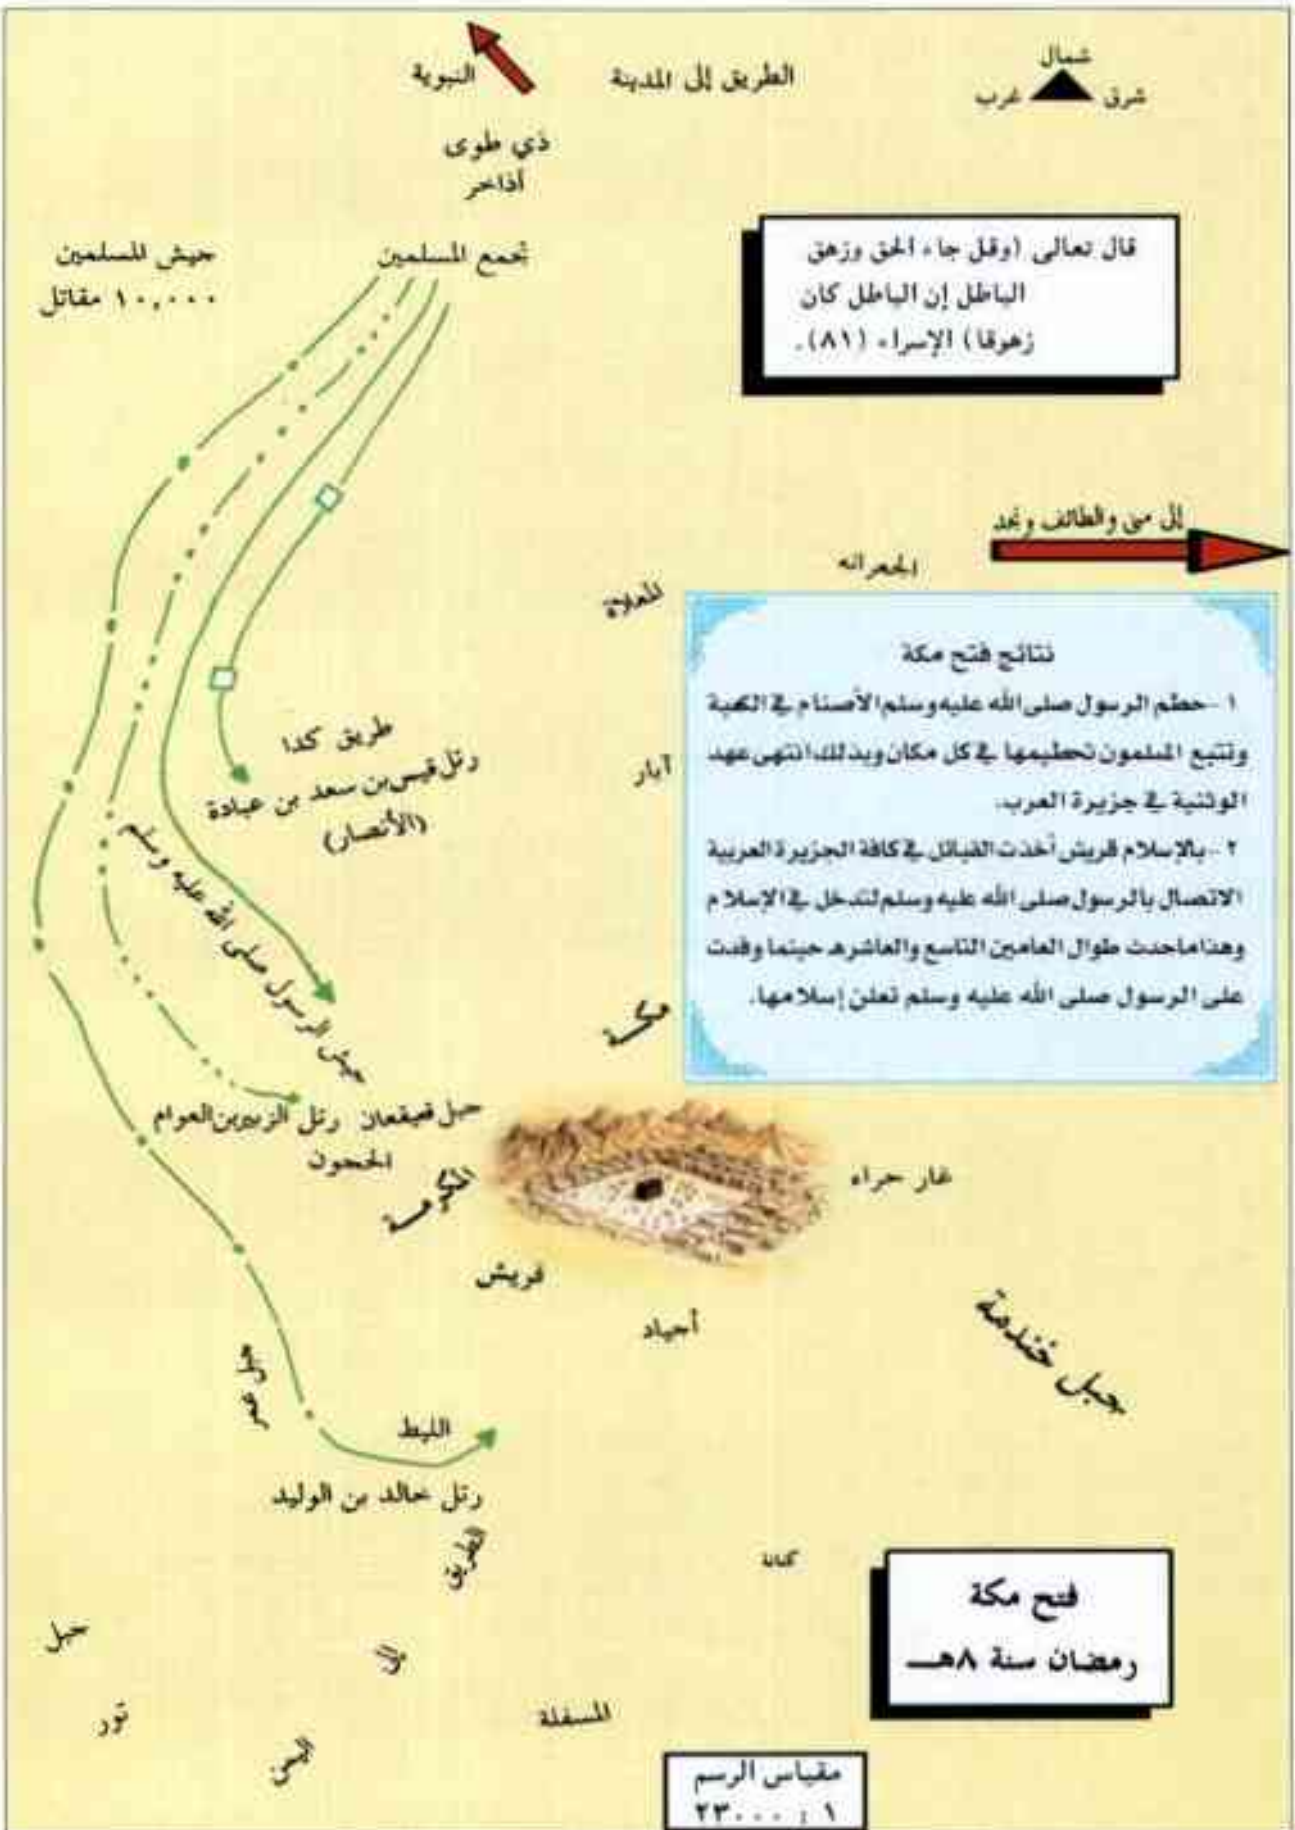 شمال
شرق غرب
الطريق إلى المدينة
النبوية
ذي طوى
أذاخر
تجمع المسلمين
جيش المسلمين
١٠,٠٠٠ مقاتل
قال تعالى (وقل جاء الحق وزهق
الباطل إن الباطل كان
زهوقا) الإسراء (٨١).
إلى منى والطائف ونجد
الجعرانه
المعلاة
نتائج فتح مكة
١- حطم الرسول صلى الله عليه وسلم الأصنام في الكعبة
وتتبع المسلمون تحطيمها في كل مكان وبذلك انتهى عهد
الوثنية في جزيرة العرب.
٢- بالإسلام قريش أخذت القبائل في كافة الجزيرة العربية
الاتصال بالرسول صلى الله عليه وسلم لتدخل في الإسلام
وهذا ماحدث طوال العامين التاسع والعاشرهـ حينما وفدت
على الرسول صلى الله عليه وسلم تعلن إسلامها.
طريق كدا
رتل قيس بن سعد بن عبادة
(الأنصار)
آبار
جيش الرسول صلى الله عليه وسلم
مكة
المكرمة
جبل قعيقعان رتل الزبير بن العوام
الحجون
غار حراء
قريش
أجياد
جبل خندمة
جبل عمر
الليط
رتل خالد بن الوليد
الطريق
إلى
اليمن
كنانة
فتح مكة
رمضان سنة ٨هـ
جبل
ثور
المسفلة
مقياس الرسم
١ : ٢٣٠٠٠